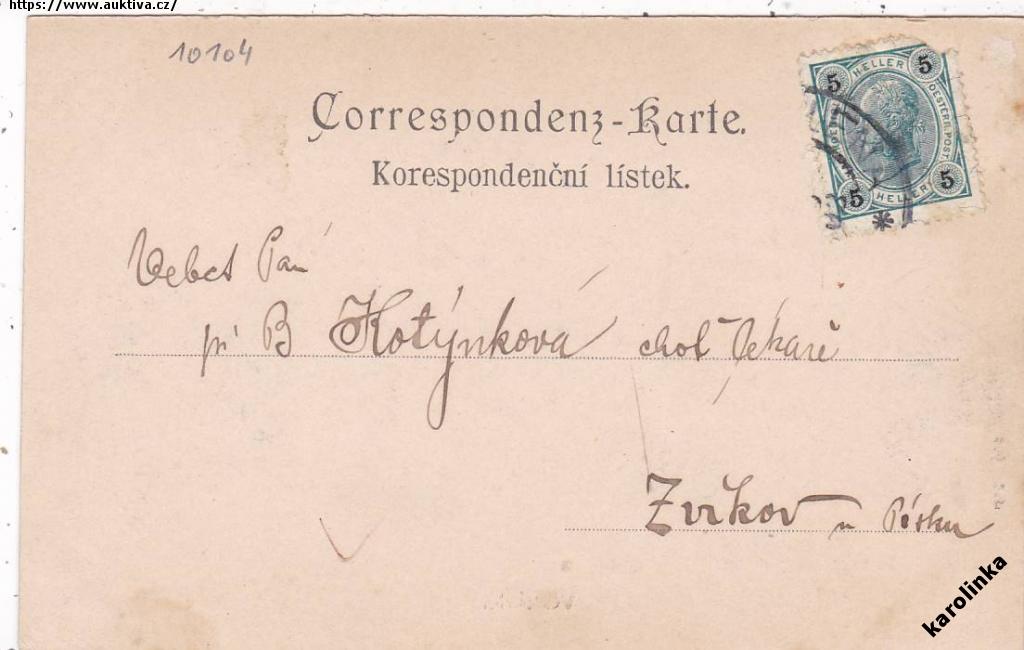 https://www.auktiva.cz/
10104
Correspondenz-Karte.
Korespondenční lístek.
5 HELLER 5
OESTERR.POST.
5 HELLER 5
Velect Paní
pí B Kotýnková choť lékaře
Zvíkov u Písku
karolinka